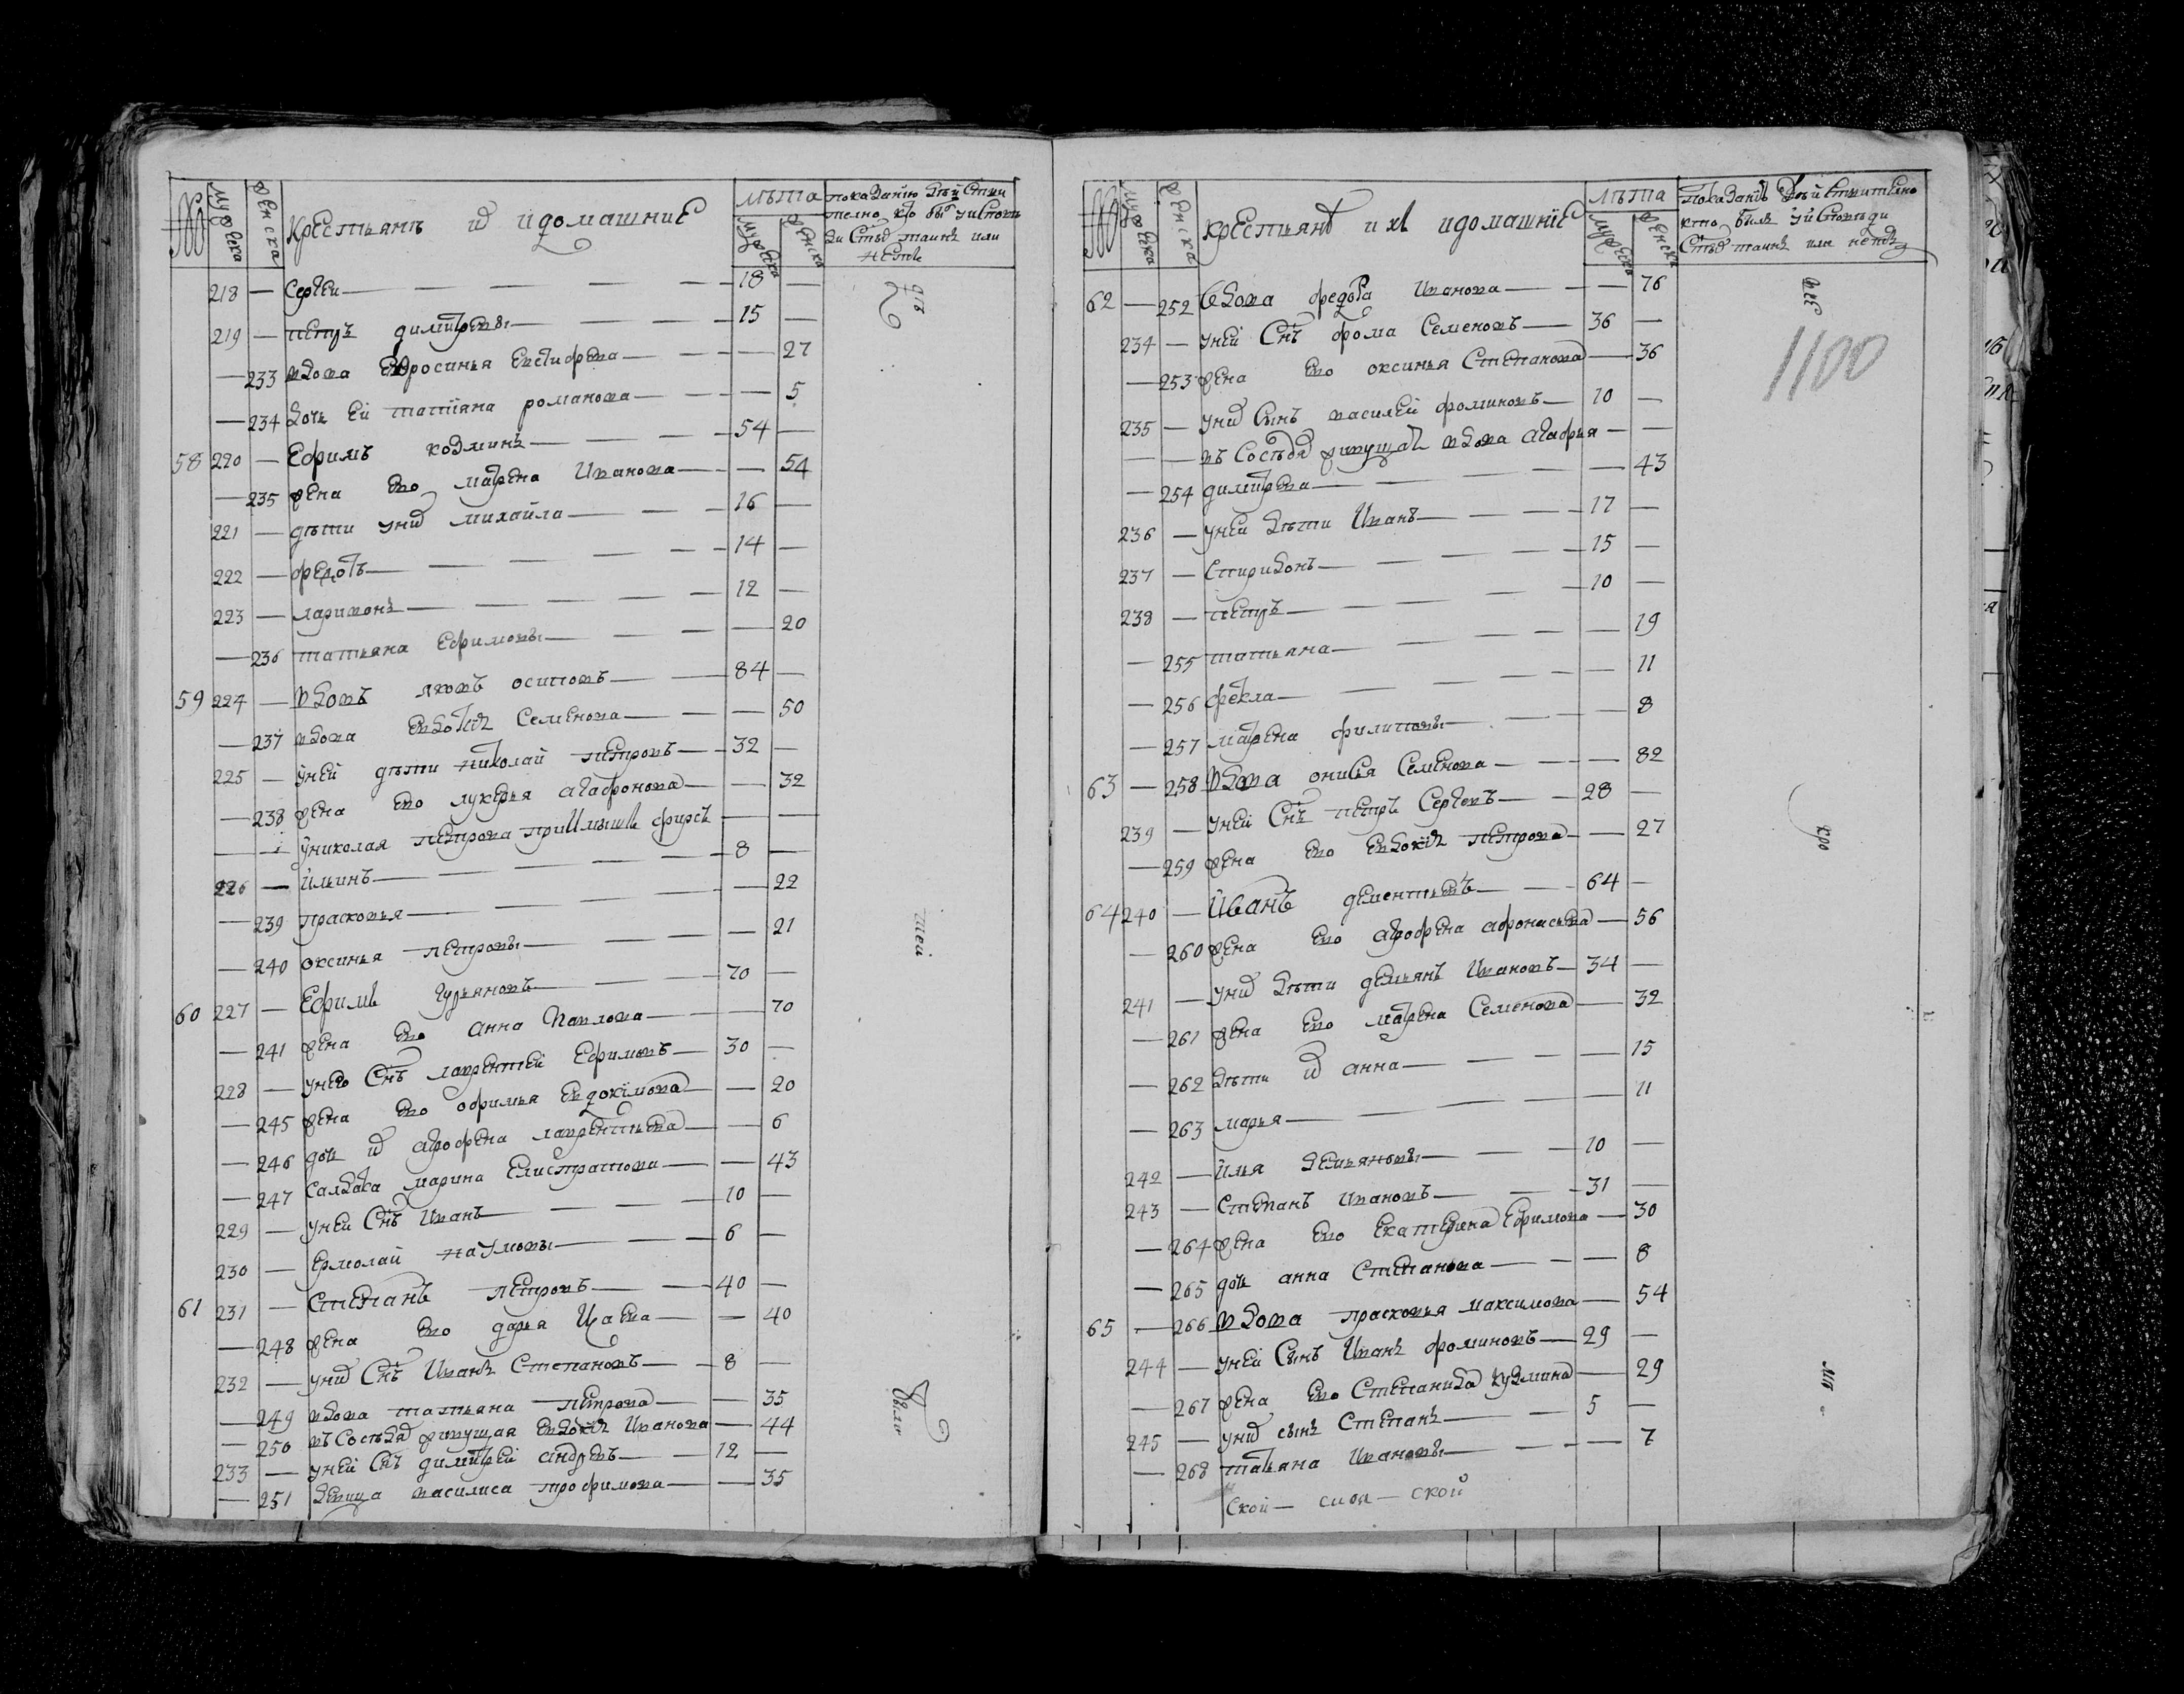 № мужеска женска Крестьянъ их и домашние лѣта мужеска женска
показанию действи
телно кто был у испове
ди свѣт таинъ или
нетъ
218 — Сергей — 18 —
219 — петръ димитревы — 15 —
— 233 вдова Ефросинья Евстифева — — 27
— 234 дочь ей татиана романова — — 5
58 220 — Ефимъ козминъ — 54 —
— 235 жена его матрена Иванова — — 54
221 — дѣти у них михайла — 16 —
222 — федотъ — 14 —
223 — ларивонъ — 12 —
— 236 татьяна Ефимовы — — 20
59 224 — вдовъ яковъ осиповъ — 84 —
— 237 вдова Евдотия Семенова — — 50
225 — у ней дѣти николай петровъ — 32 —
— 238 жена его лукерья агафонова — — 32
— — у николая петрова приимышъ фирсъ — —
226 — ильинъ — 8 —
— 239 прасковья — — 22
— 240 оксинья петровы — — 21
60 227 — Ефимъ гурьяновъ — 70 —
— 241 жена его анна Павлова — — 70
228 — у него Снъ лаврентей Ефимовъ — 30 —
— 245 жена его офимья Евдокимова — — 20
— 246 доч их агрофена лаврентьева — — 6
— 247 Салдатка марина Елистратова — — 43
229 — у ней Снъ Иванъ — 10 —
230 — Ермолай наумовы — 6 —
61 231 — Степанъ петровъ — 40 —
— 248 жена его дарья Исаева — — 40
232 — у них Снъ Иванъ Степановъ — 8 —
— 249 вдова татьяна петрова — — 35
— 250 въ Соседях живущая Евдокия Иванова — — 44
233 — у ней Снъ димитрей андревъ — 12 —
— 251 девица василиса трофимова — — 35
были
№ мужеска женска крестьянъ ихъ и домашние лѣта мужеска женска
показанию действително
кто былъ у исповеди
Свѣт таинъ или нетъ
62 — 252 вдова федора Иванова — — 76
234 — у ней Снъ фома Семеновъ — 36 —
— 253 жена его оксинья Степанова — — 36
235 — у них сынъ василей фоминовъ — 10 —
— — въ Соседях живущая вдова агафья — —
— 254 димитрева — — 43
236 — у ней дѣти Иванъ — 17 —
237 — Спиридонъ — 15 —
238 — петръ — 10 —
— 255 татьяна — — 19
— 256 фекла — — 11
— 257 матрена филиповы — — 8
63 — 258 вдова онисья Семенова — — 82
239 — у ней Снъ петръ Сергевъ — 28 —
— 259 жена его Евдокия петрова — — 27
64 240 — Иванъ дементьевъ — 64 —
— 260 жена его агрофена афонасьева — — 56
241 — у них дѣти демьянъ Ивановъ — 34 —
— 261 жена его матрена Семенова — — 32
— 262 дѣти их анна — — 15
— 263 марья — — 11
242 — Илья демьяновы — 10 —
243 — Степанъ Ивановъ — 31 —
— 264 жена его Екатерина Ефимова — — 30
— 265 доч анна Степанова — — 8
65 — 266 вдова прасковья максимова — — 54
244 — у ней Сынъ Иванъ фоминовъ — 29 —
— 267 жена его Степанида кузмина — — 29
245 — у них сынъ Степанъ — 5 —
— 268 татьяна Ивановы — — 7
все
1100
кро
мѣ